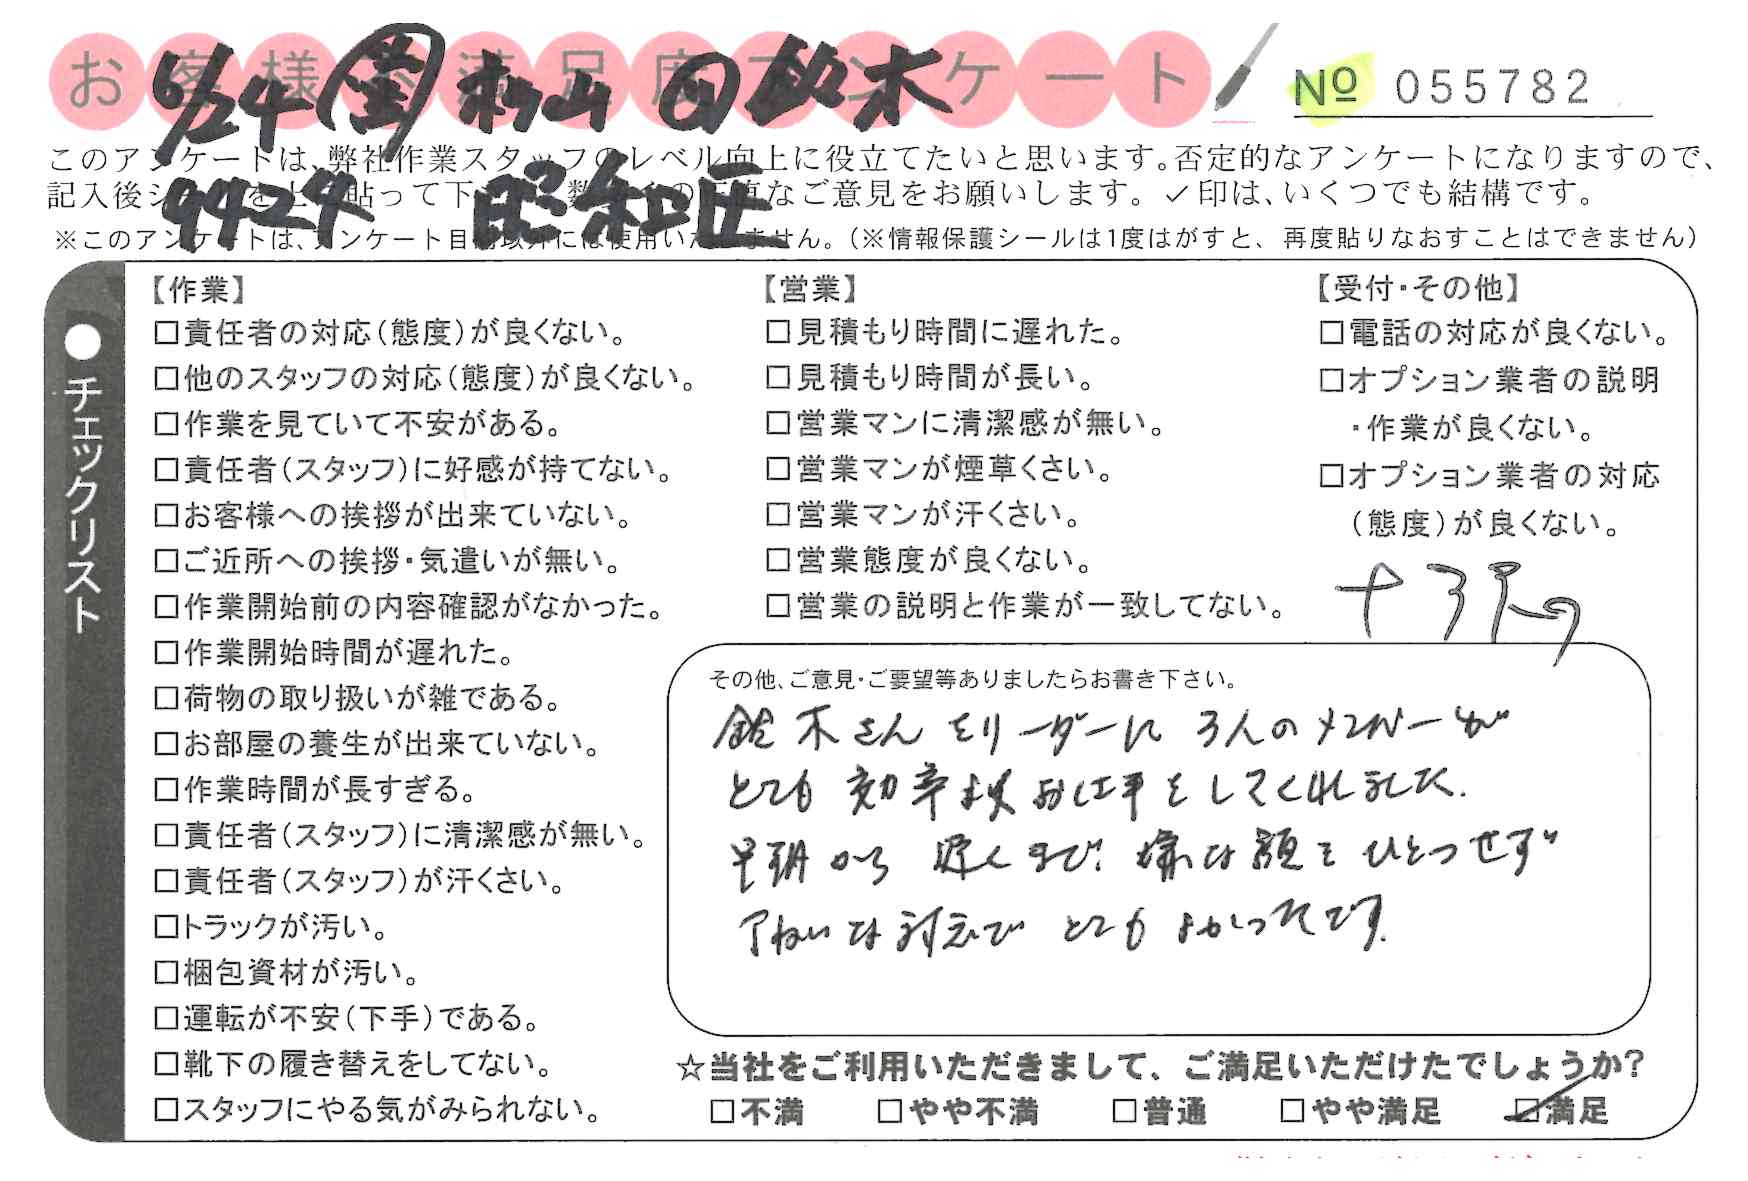 お客様不満足度アンケート
№ 055782
6/24 (金) 杉山 鈴木
9424 昭和区
このアンケートは、弊社作業スタッフのレベル向上に役立てたいと思います。否定的なアンケートになりますので、
記入後シールを上に貼って下 数 の正直なご意見をお願いします。✓印は、いくつでも結構です。
※このアンケートは、アンケート目的以外には使用いたしません。(※情報保護シールは1度はがすと、再度貼りなおすことはできません)
●チェックリスト
【作業】
□責任者の対応(態度)が良くない。
□他のスタッフの対応(態度)が良くない。
□作業を見ていて不安がある。
□責任者(スタッフ)に好感が持てない。
□お客様への挨拶が出来ていない。
□ご近所への挨拶・気遣いが無い。
□作業開始前の内容確認がなかった。
□作業開始時間が遅れた。
□荷物の取り扱いが雑である。
□お部屋の養生が出来ていない。
□作業時間が長すぎる。
□責任者(スタッフ)に清潔感が無い。
□責任者(スタッフ)が汗くさい。
□トラックが汚い。
□梱包資材が汚い。
□運転が不安(下手)である。
□靴下の履き替えをしてない。
□スタッフにやる気がみられない。
【営業】
□見積もり時間に遅れた。
□見積もり時間が長い。
□営業マンに清潔感が無い。
□営業マンが煙草くさい。
□営業マンが汗くさい。
□営業態度が良くない。
□営業の説明と作業が一致してない。
【受付・その他】
□電話の対応が良くない。
□オプション業者の説明
・作業が良くない。
□オプション業者の対応
(態度)が良くない。
その他、ご意見・ご要望等ありましたらお書き下さい。
鈴木さんをリーダーに3人のメンバーが
とても効率よくお仕事をしてくれました.
早朝から遅くまで、嫌な顔をひとつせず
丁ねいな対応でとてもよかったです.
☆当社をご利用いただきまして、ご満足いただけたでしょうか?
□不満 □やや不満 □普通 □やや満足 ☑満足